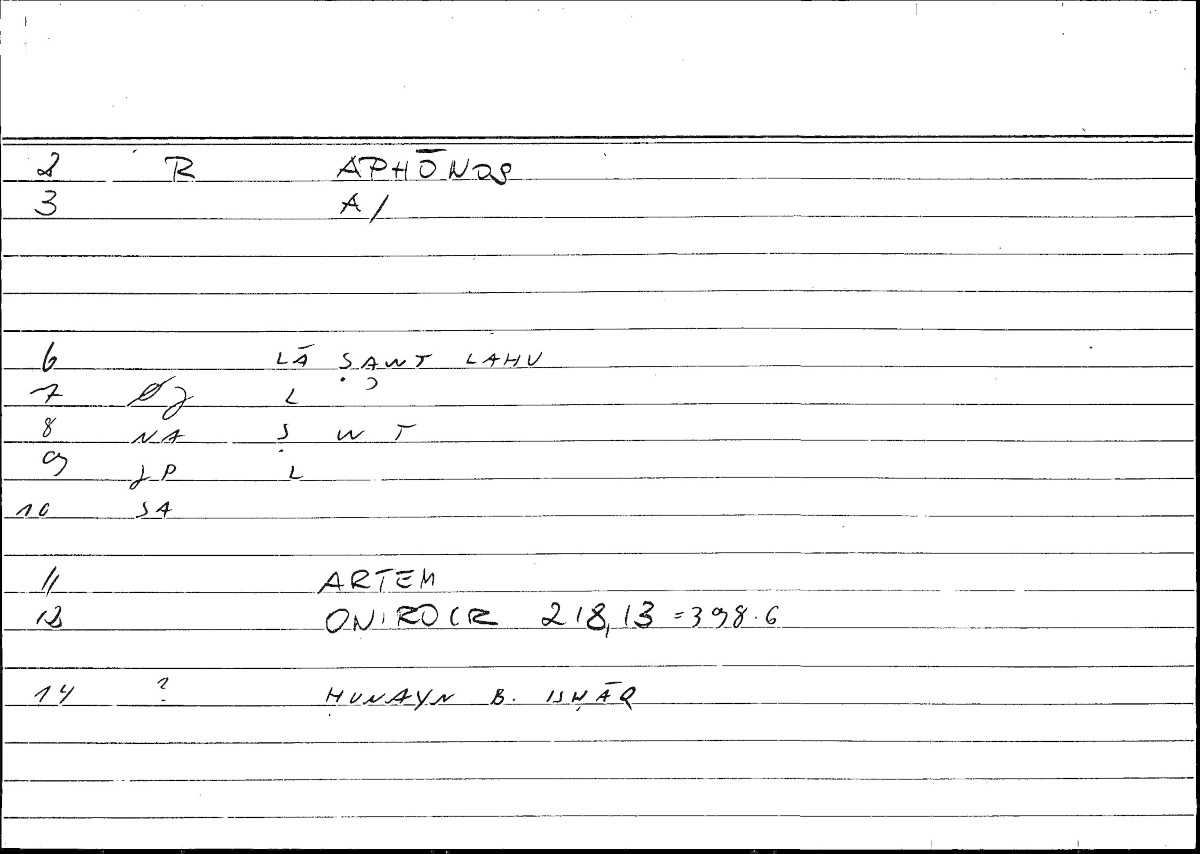 2 R APHŌNOS
3 A/
6 LĀ ṢAWT LAHU
7 L
8 NA Ṣ W T
9 JP L
10 SA
11 ARTEM
12 ONIROCR 218,13 =398.6
14 ? ḤUNAYN B. ISḤĀQ